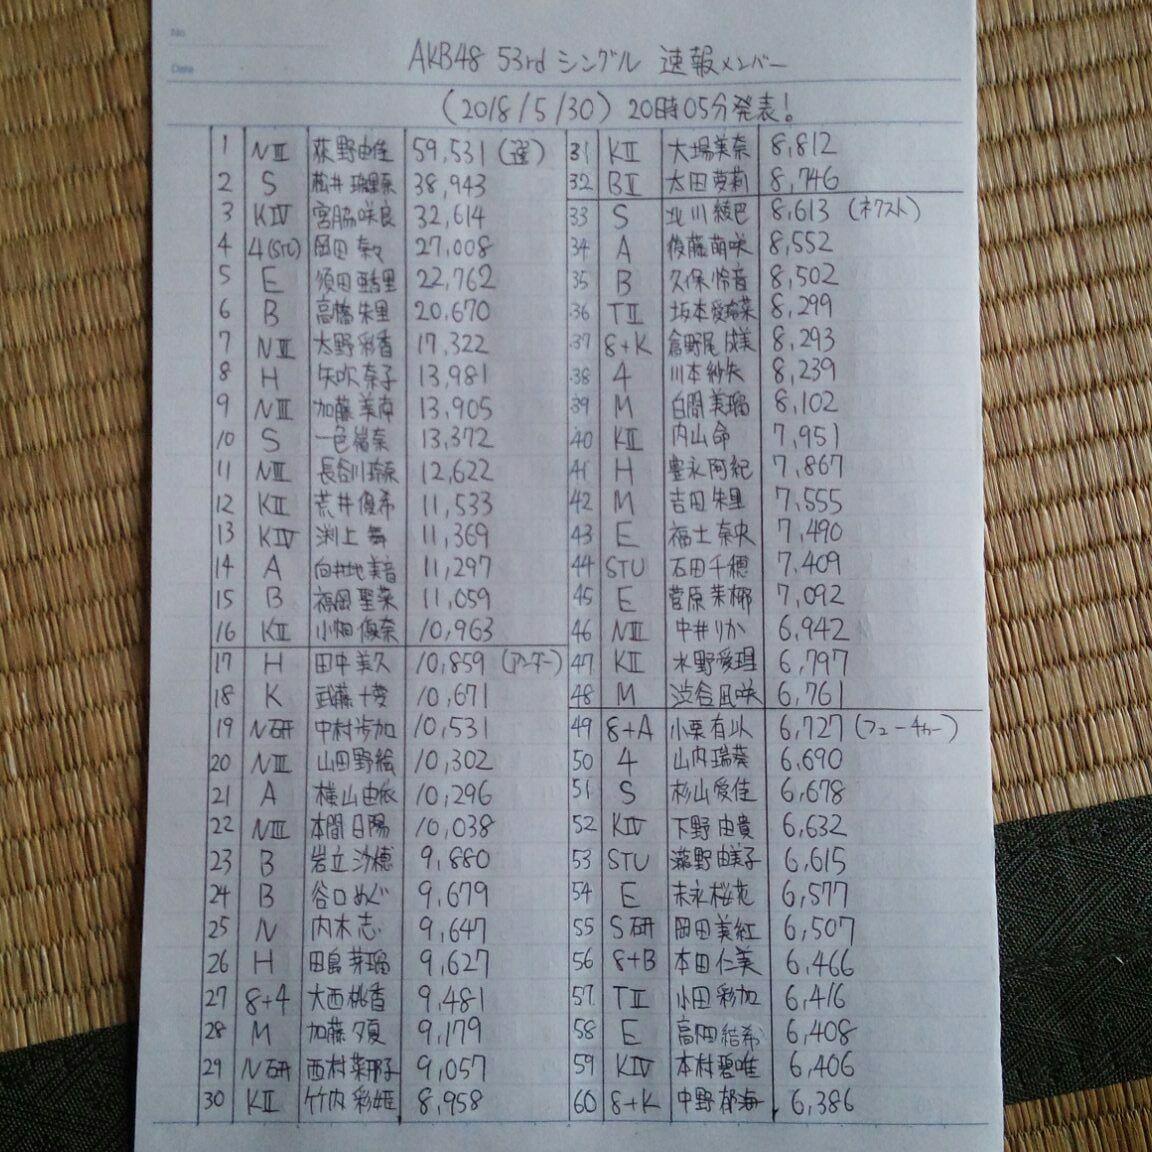 No.
Date
AKB48 53rd シングル 速報メンバー
(2018/5/30) 20時05分発表!
1 NⅢ 荻野由佳 59,531 (選)
2 S 松井珠理奈 38,943
3 KⅣ 宮脇咲良 32,614
4 4(STU) 岡田奈々 27,008
5 E 須田亜香里 22,762
6 B 高橋朱里 20,670
7 NⅢ 太野彩香 17,322
8 H 矢吹奈子 13,981
9 NⅢ 加藤美南 13,905
10 S 一色嶺奈 13,372
11 NⅢ 長谷川玲奈 12,622
12 KⅡ 荒井優希 11,533
13 KⅣ 渕上舞 11,369
14 A 向井地美音 11,297
15 B 福岡聖菜 11,059
16 KⅡ 小畑優奈 10,963
17 H 田中美久 10,859 (アンダー)
18 K 武藤十夢 10,671
19 N研 中村歩加 10,531
20 NⅢ 山田野絵 10,302
21 A 横山由依 10,296
22 NⅢ 本間日陽 10,038
23 B 岩立沙穂 9,880
24 B 谷口めぐ 9,679
25 N 内木志 9,647
26 H 田島芽瑠 9,627
27 8+4 大西桃香 9,481
28 M 加藤夕夏 9,179
29 N研 西村菜那子 9,057
30 KⅡ 竹内彩姫 8,958
31 KⅡ 大場美奈 8,812
32 BⅡ 太田夢莉 8,746
33 S 北川綾巴 8,613 (ネクスト)
34 A 後藤萌咲 8,552
35 B 久保怜音 8,502
36 TⅡ 坂本愛玲菜 8,299
37 8+K 倉野尾成美 8,293
38 4 川本紗矢 8,239
39 M 白間美瑠 8,102
40 KⅡ 内山命 7,951
41 H 豊永阿紀 7,867
42 M 吉田朱里 7,555
43 E 福士奈央 7,490
44 STU 石田千穂 7,409
45 E 菅原茉椰 7,092
46 NⅢ 中井りか 6,942
47 KⅡ 水野愛理 6,797
48 M 渋谷凪咲 6,761
49 8+A 小栗有以 6,727 (フューチャー)
50 4 山内瑞葵 6,690
51 S 杉山愛佳 6,678
52 KⅣ 下野由貴 6,632
53 STU 瀧野由美子 6,615
54 E 末永桜花 6,577
55 S研 岡田美紅 6,507
56 8+B 本田仁美 6,466
57 TⅡ 小田彩加 6,416
58 E 高畑結希 6,408
59 KⅣ 本村碧唯 6,406
60 8+K 中野郁海 6,386